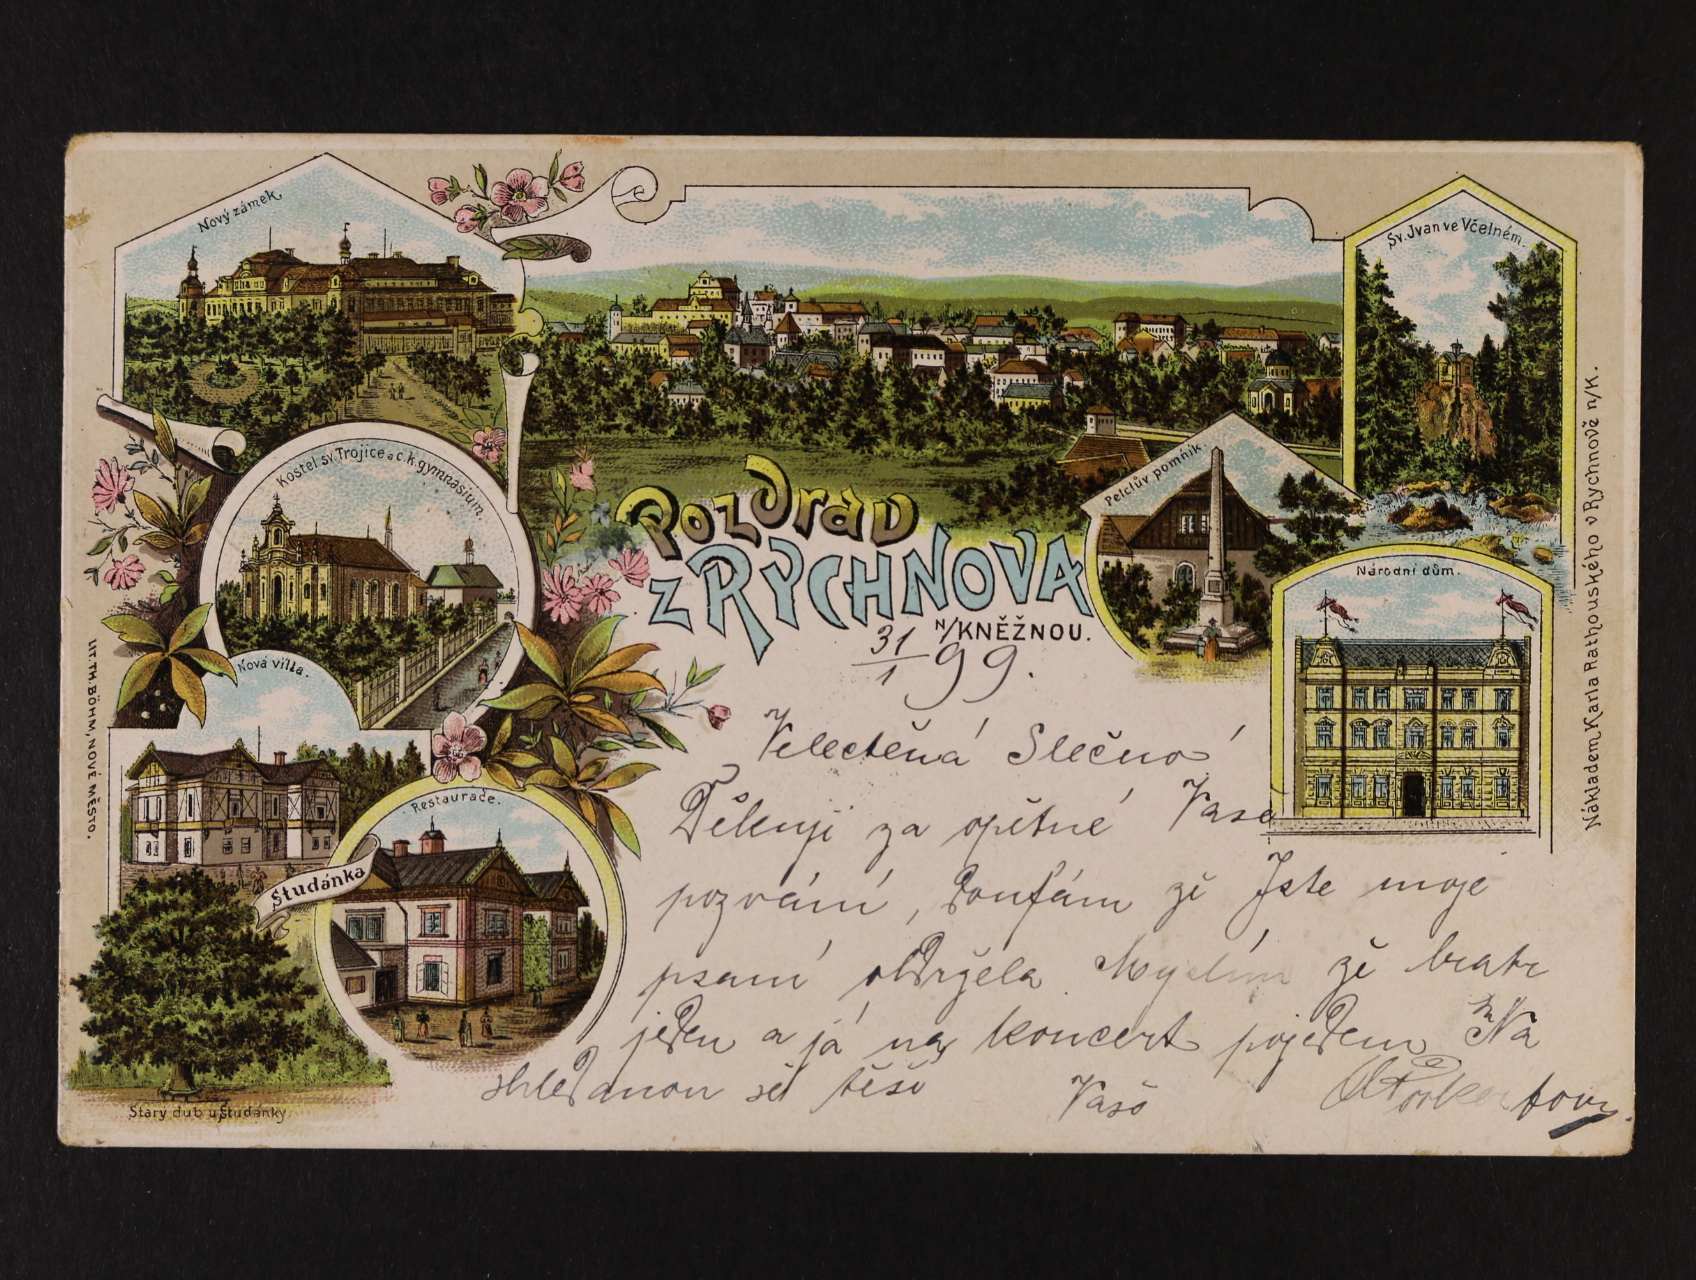 Nový zámek.
Sv. Jvan ve Včelném.
Kostel sv. Trojice a c. k. gymnasium.
Pelclův pomník.
Pozdrav
z RYCHNOVA
N/KNĚŽNOU.
Národní dům.
31/1 99.
Nová villa.
Restaurace.
Studánka
Starý dub u Studánky
LIT. TH. BÖHM, NOVÉ MĚSTO.
Nákladem Karla Rathouského v Rychnově n/K.
Velectěná Slečno
Děkuji za opětné Vaše
pozvání, doufám že Jste moje
psaní obdržela Myslím že bratr
jeden a já na koncert pojedem Na
shledanou se těší Vaše